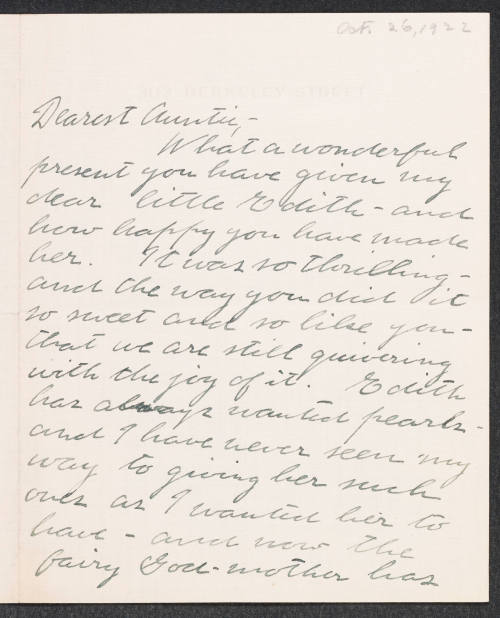 Oct. 26, 1922
302 BERKELEY STREET
Dearest Auntie,-
What a wonderful
present you have given my
dear little Edith - and
how happy you have made
her. It was so thrilling -
and the way you did it
so sweet and so like you -
that we are still quivering
with the joy of it. Edith
has always wanted pearls -
and I have never seen my
way to giving her such
ones as I wanted her to
have - and now the
fairy God-mother has